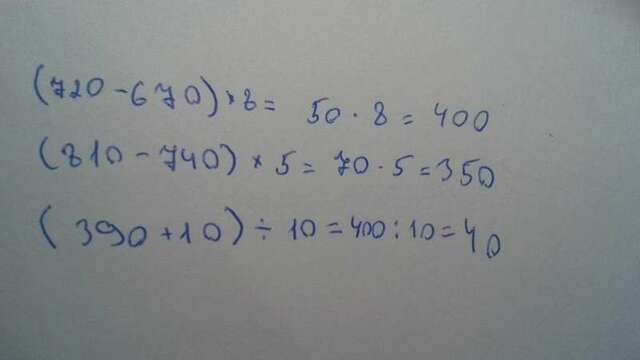 (720-670)*8= 50·8=400
(810-740)*5=70·5=350
(390+10)÷10=400:10=40